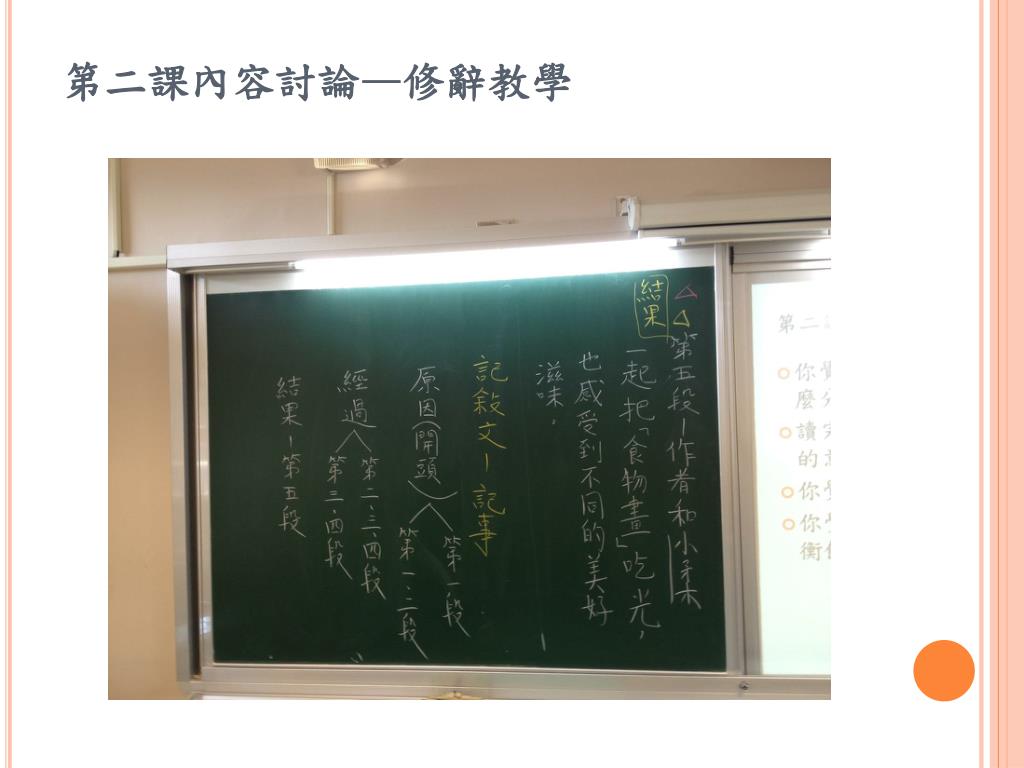 第二課內容討論—修辭教學
結果
第五段－作者和小柔
一起把「食物畫」吃光，
也感受到不同的美好
滋味。
記敘文－記事
原因(開頭)
第一段
第一、二段
經過
第二、三、四段
第三、四段
結果－第五段
第二
你覺
麼分
讀完
的
你覺
你
衡